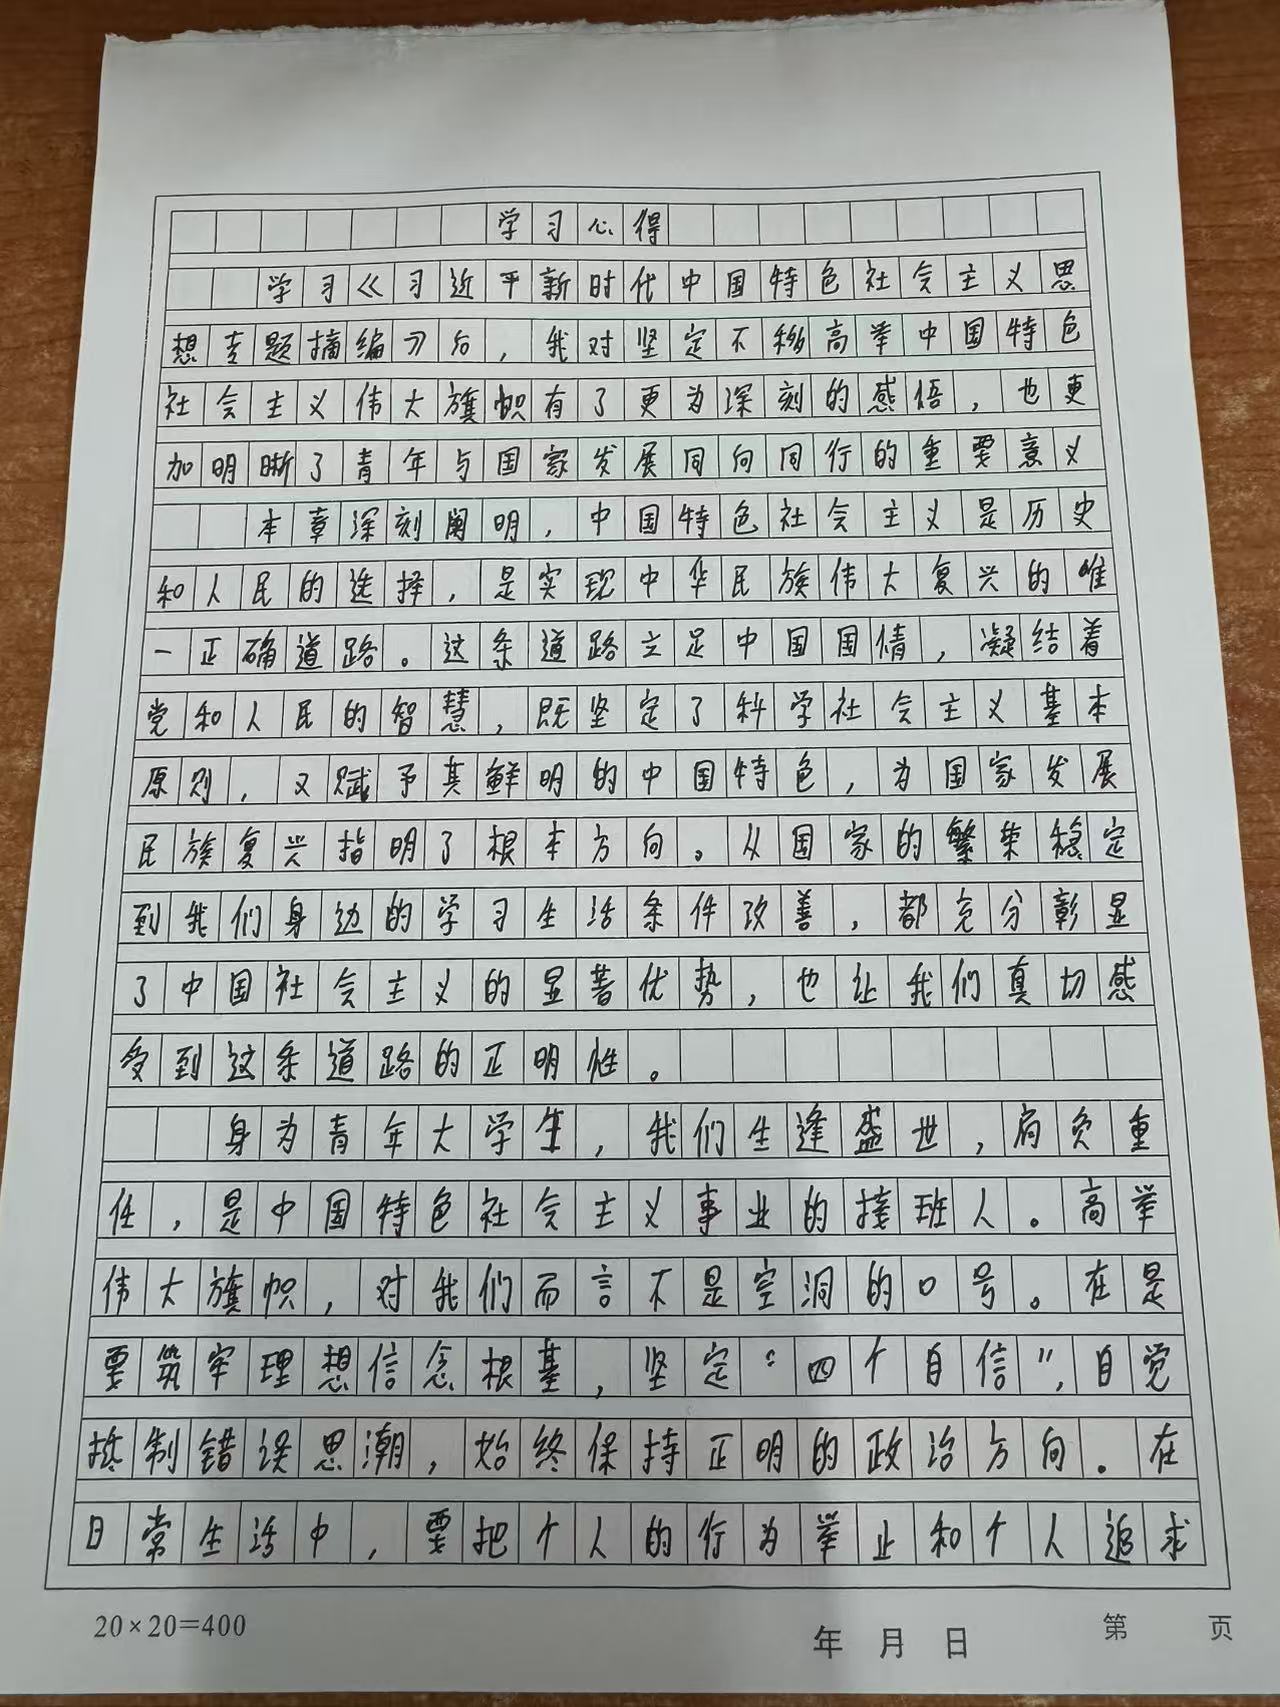 学习心得
学习《习近平新时代中国特色社会主义思
想专题摘编》后，我对坚定不移高举中国特色
社会主义伟大旗帜有了更为深刻的感悟，也更
加明晰了青年与国家发展同向同行的重要意义
本章深刻阐明，中国特色社会主义是历史
和人民的选择，是实现中华民族伟大复兴的唯
一正确道路。这条道路立足中国国情，凝结着
党和人民的智慧，既坚定了科学社会主义基本
原则，又赋予其鲜明的中国特色，为国家发展
民族复兴指明了根本方向。从国家的繁荣稳定
到我们身边的学习生活条件改善，都充分彰显
了中国社会主义的显著优势，也让我们真切感
受到这条道路的正明性。
身为青年大学生，我们生逢盛世，肩负重
任，是中国特色社会主义事业的接班人。高举
伟大旗帜，对我们而言不是空洞的口号。在是
要筑牢理想信念根基，坚定“四个自信”，自觉
抵制错误思潮，始终保持正明的政治方向。在
日常生活中，要把个人的行为举止和个人追求
20×20=400
年 月 日
第 页